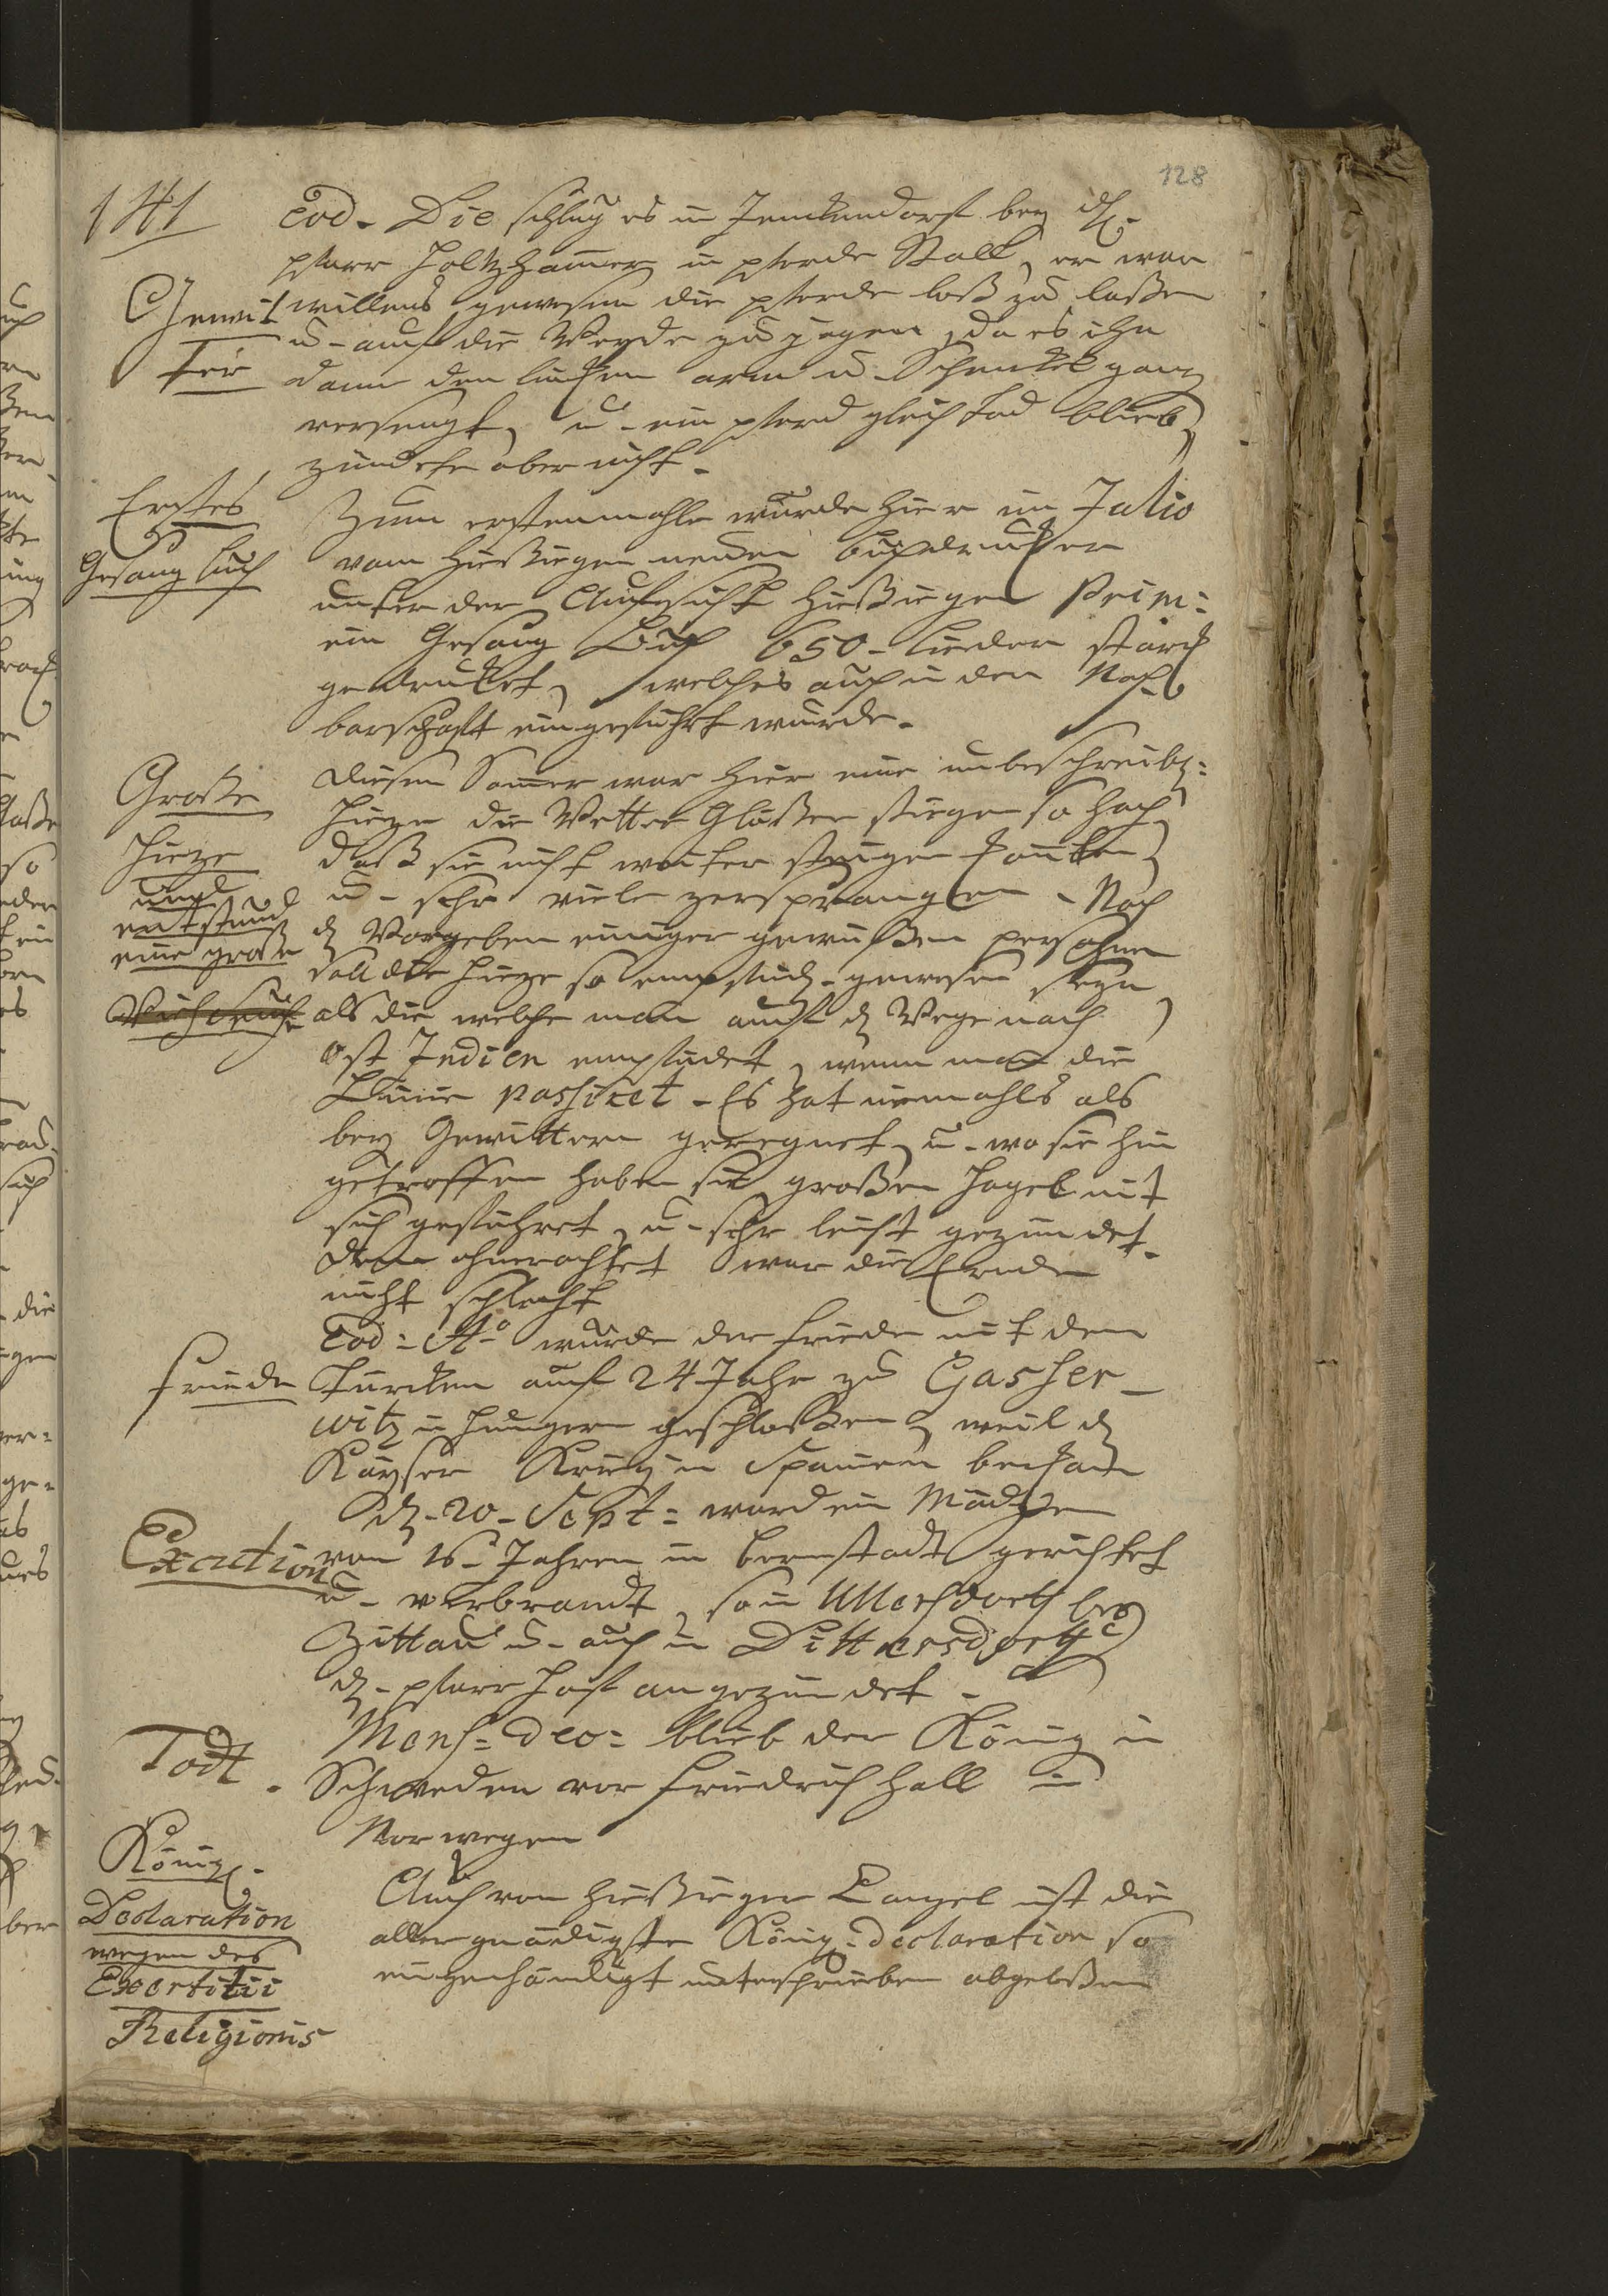 128
141
Eod. Die schlug es in Jenckendorf bey dH.
pfarr Holtzhamer in pferde Stall, er war
Gewit willens gewesen die pferde loß zu laßen
ter
u. auf die Weyde zu jagen, da es ihn
dann den lincken arm u. Schenckel ganz
versengt, u. ein pferd gleich tod blieb,
zündete aber nicht.
Erstes
Gesang buch
Zum erstenmahle wurde hier im Julio
vom hießigen neuen buchdrucker
unter der Aufsicht hießigen Prim:
ein Gesang Buch 650. lieder starck
gedrucket, welches auch in den Nach
barschafft eingeführt wurde.
Große
Hieze
und
entstund
eine große
diesen Somer war hier eine unbeschreibl:
Hieze die Wetter Gläßer stiegen so hoch
daß sie nicht weiter steigen konten,
u. sehr viele zersprangen. Nach
dH Vorgeben einiger gewißen persohnen
soll die Hieze so empfindl. gewesen seyn
als die welche man auf dH Wege nach
Ost Indien empfindet, wenn man die
Linie passiret. Es hat niemahls als
bey Gewittern geregnet, u. wo sie hin
getroffen haben sie großen Hagel mit
sich geführet, u. sehr leicht gezündet.
dem ohnerachtet war die Ernde
nicht schlecht
Friede
Eod: Ao wurde der friede mit dem
Türcken auf 24 Jahr zu Gasser_
witz in Hungern geschloßen, weil dH
Käyser Krieg in Spanien bekam
Execution
dH. 20. Sept: ward ein Mädgen
von 16. Jahren in bernstadt gerichtet
u. verbrandt, so in Ullersdorf bey
Zittau u. auch in Dittersdorf
dH. pfarr Hoff angezündet.
Todt.
Mens: Dec: blieb der König in
Schweden vor friedrich hall in
Norwegen
König.
Declaration
wegen des
Exercitii
Religionis
Auch von hießiger Cangel ist die
aller gnädigste König: Declaration so
eigenhändigt unterschrieben abgeleßen